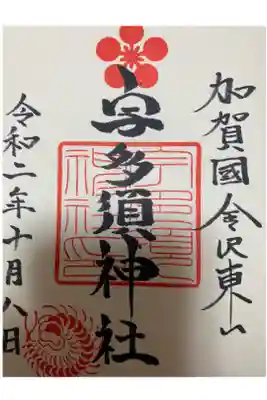 加賀國金沢東山
宇多須神社
令和二年十月八日